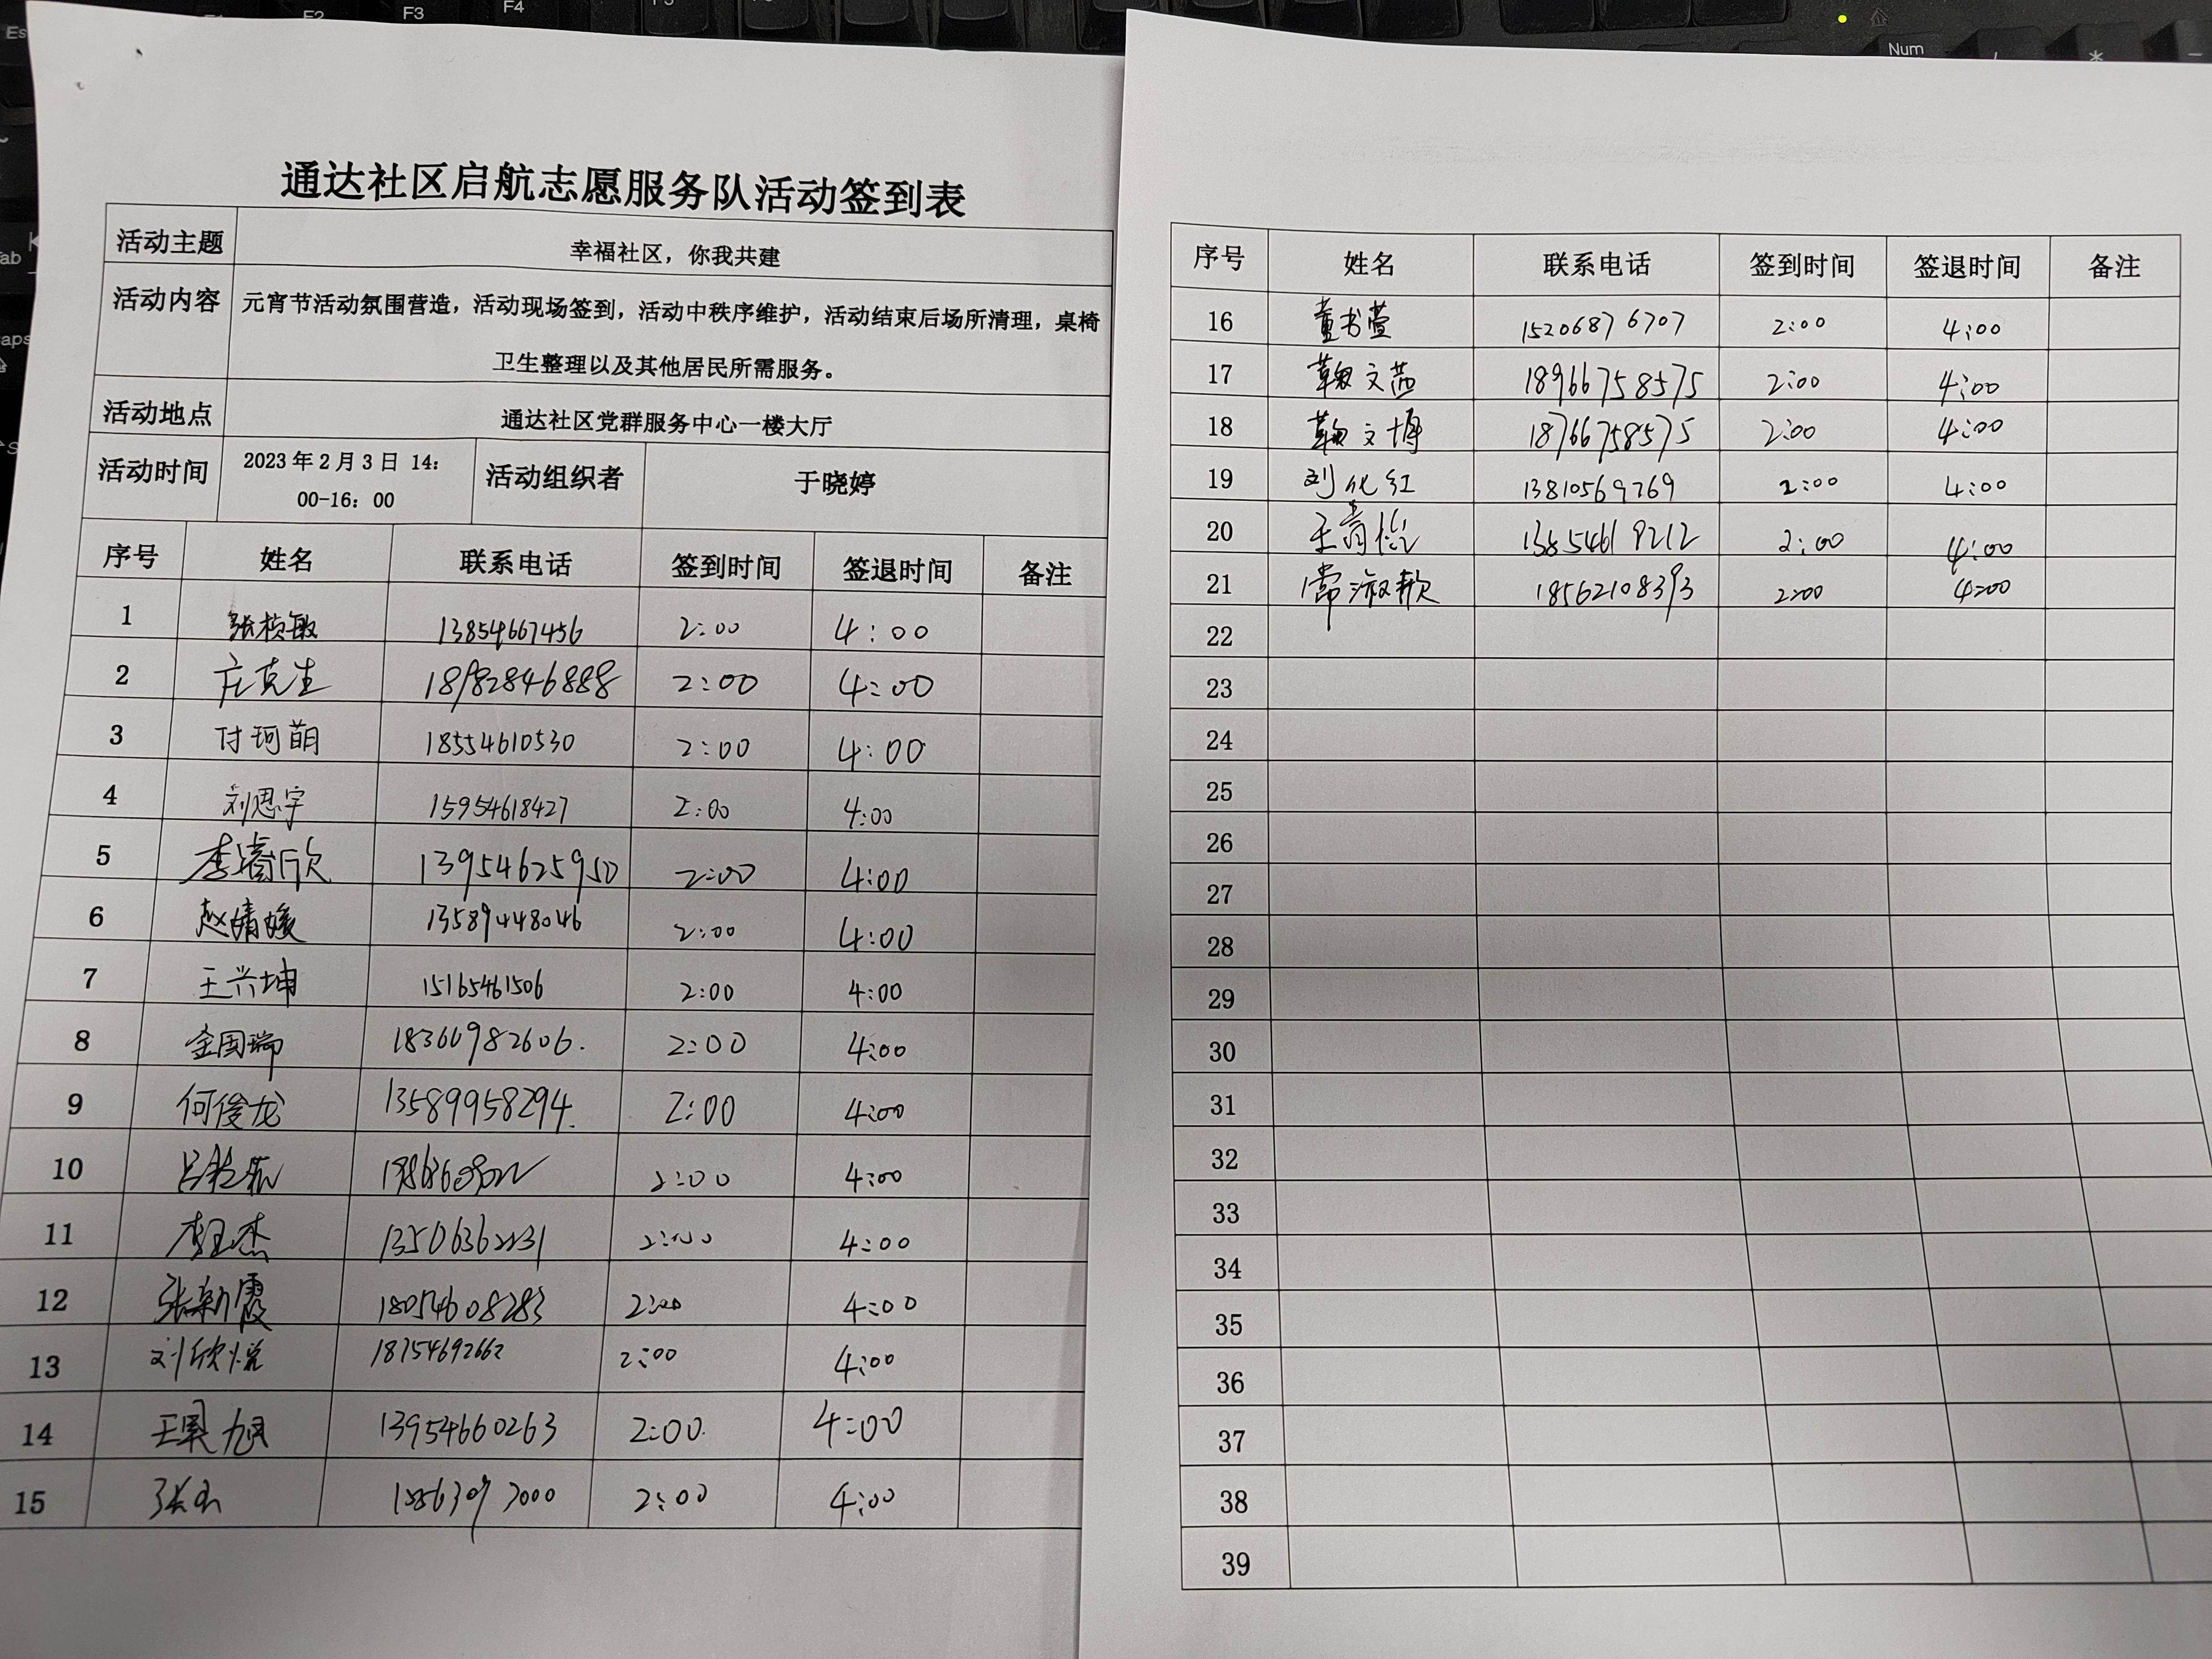 通达社区启航志愿服务队活动签到表
活动主题 幸福社区，你我共建
活动内容 元宵节活动氛围营造，活动现场签到，活动中秩序维护，活动结束后场所清理，桌椅
卫生整理以及其他居民所需服务。
活动地点 通达社区党群服务中心一楼大厅
活动时间 2023年2月3日 14：
00-16：00
活动组织者 于晓婷
序号 姓名 联系电话 签到时间 签退时间 备注
1 张桢敏 13854667456 2:00 4:00
2 庄克生 2:00 4:00
3 付珂萌 18554610530 2:00 4:00
4 刘思宇 15954618427 2:00 4:00
5 李睿欣 13954625950 2:00 4:00
6 赵婧媛 13589448046 2:00 4:00
7 王兴坤 15165461506 2:00 4:00
8 金国瑞 18366982606. 2:00 4:00
9 何俊龙 13589958294. 2:00 4:00
10 2:00 4:00
11 李玉杰 2:00 4:00
12 张新霞 18054608283 2:00 4:00
13 刘欣悦 18754692662 2:00 4:00
14 13954660263 2:00 4:00
15 2:00 4:00
序号 姓名 联系电话 签到时间 签退时间 备注
16 董书萱 15206876707 2:00 4:00
17 鞠文茜 18966758575 2:00 4:00
18 鞠文博 18766758575 2:00 4:00
19 刘化红 13810569769 2:00 4:00
20 13854619212 2:00 4:00
21 常淑歌 18562108393 2:00 4:00
22
23
24
25
26
27
28
29
30
31
32
33
34
35
36
37
38
39
F2
F3
F4
Num